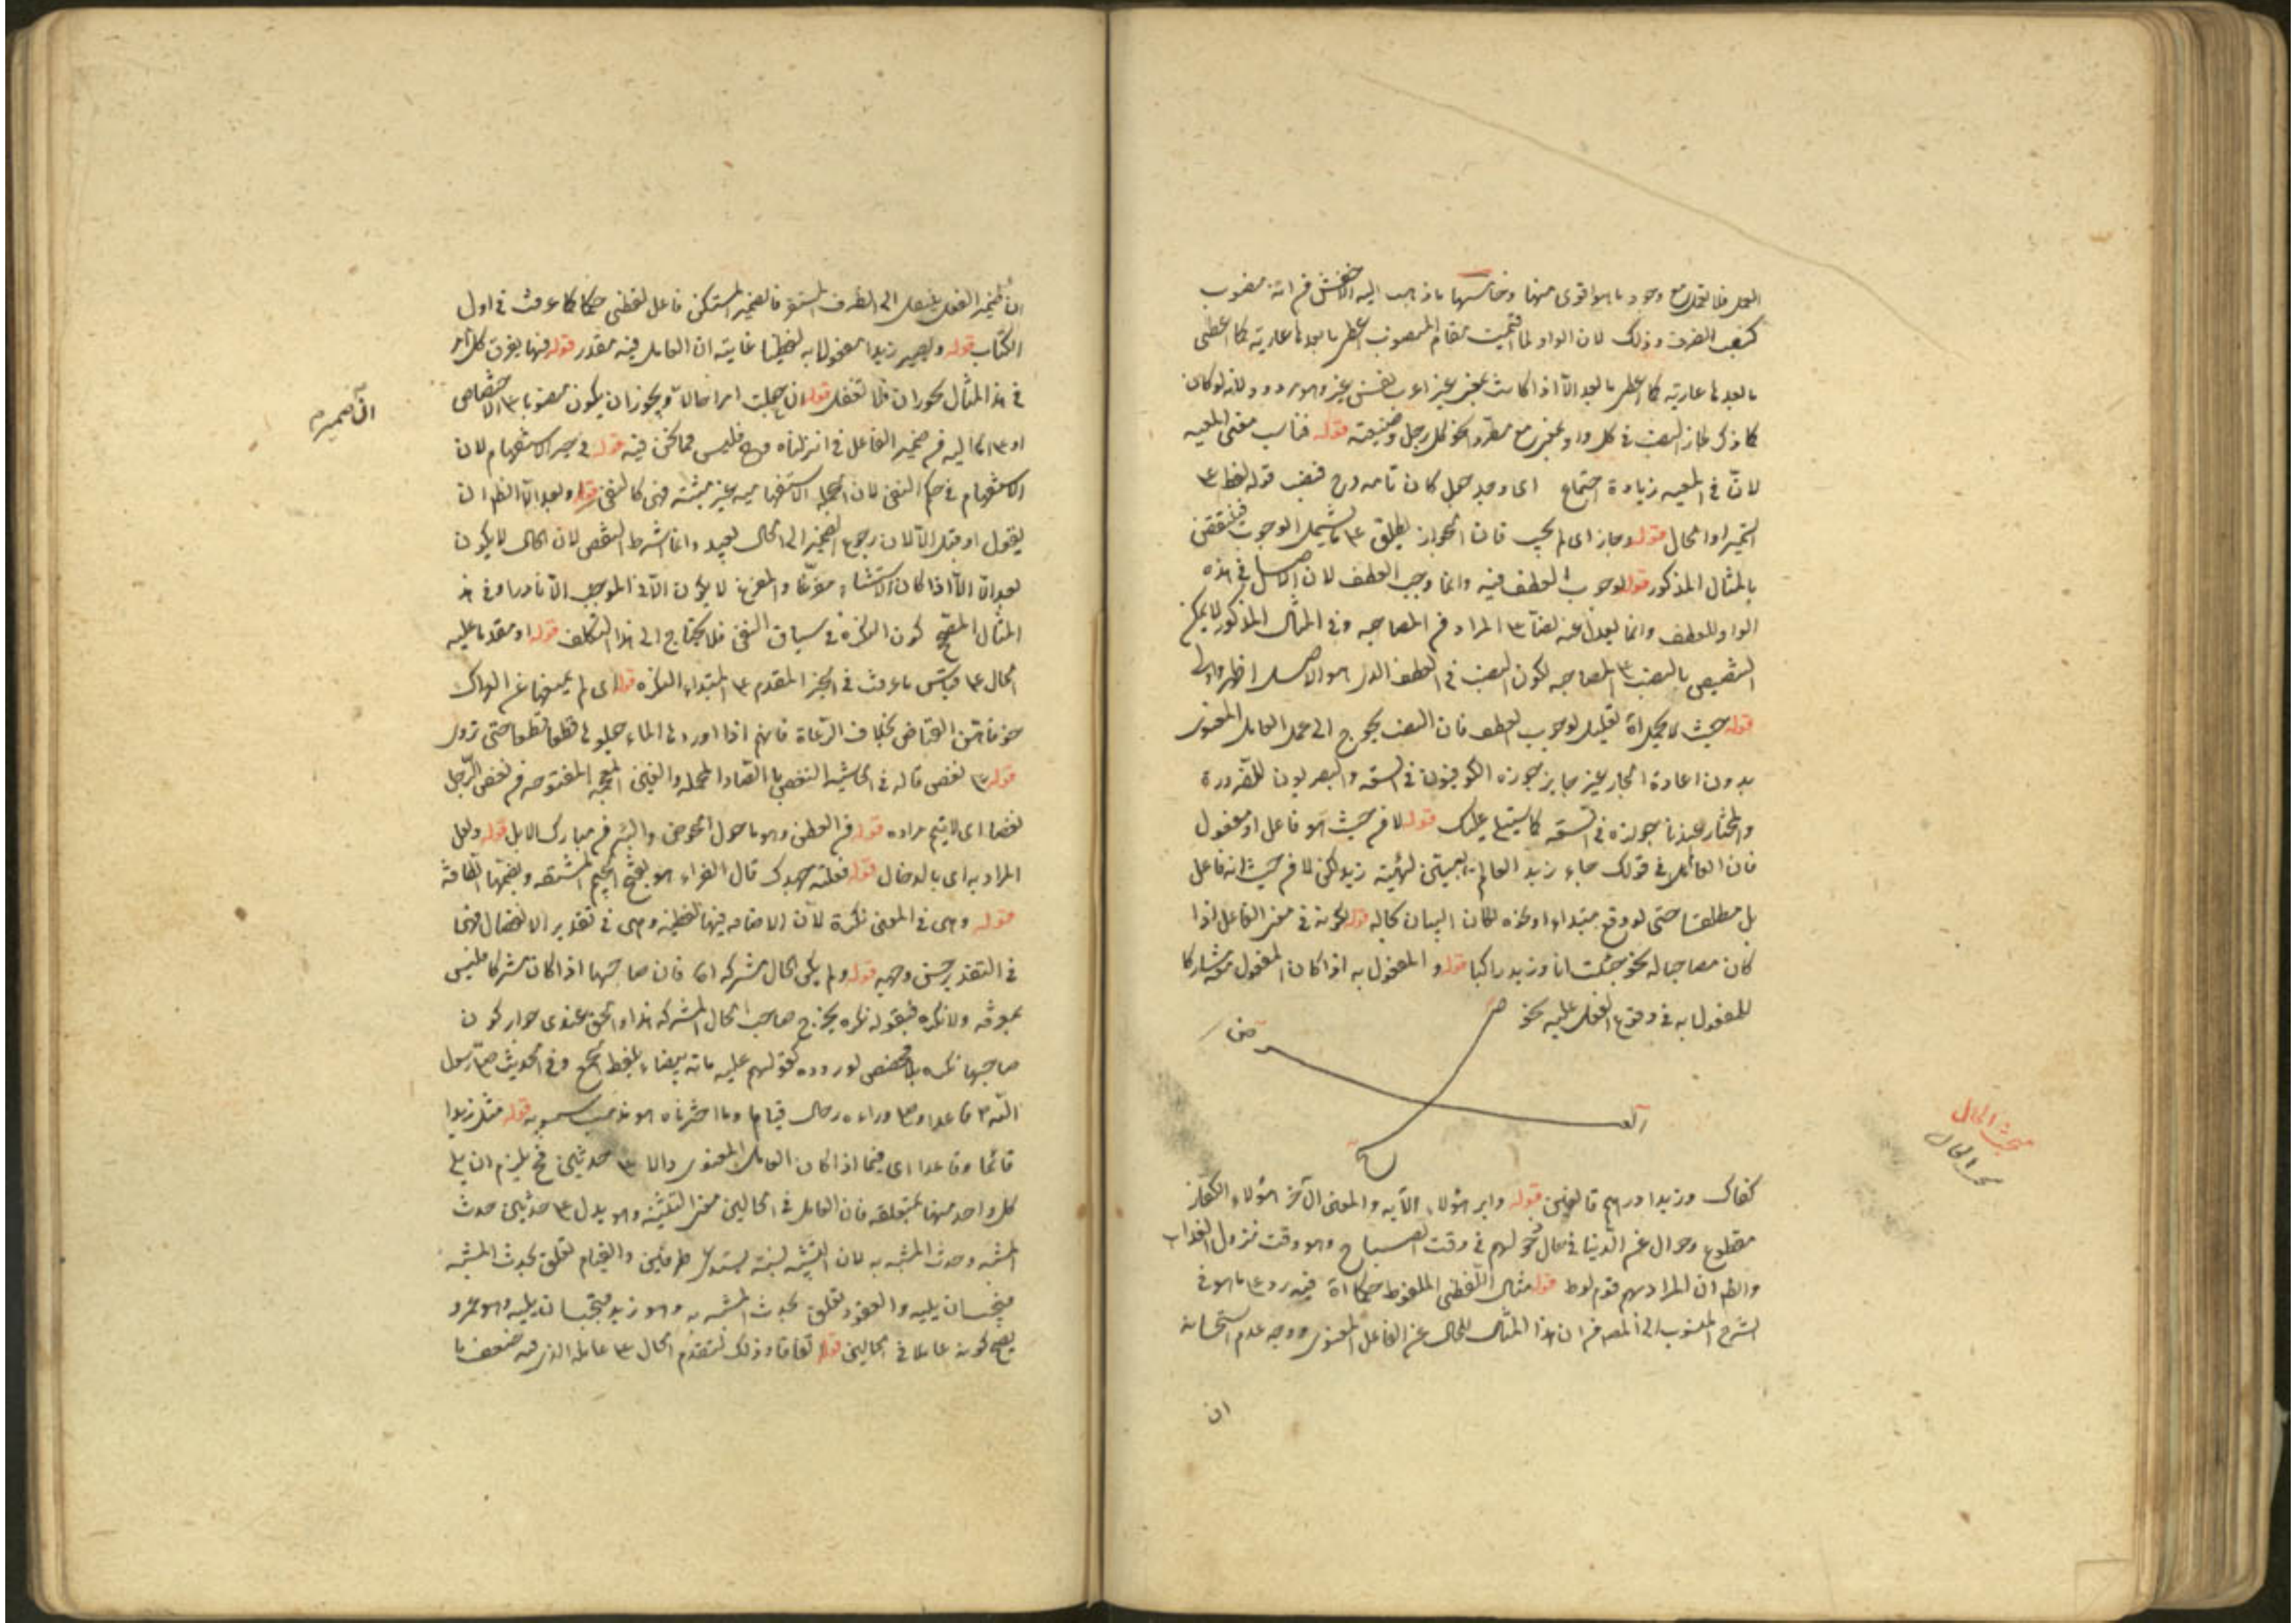 العمل فلا تعمل مع وجود ما هو اقوى منها وخامسها ما ذهب اليه الاخفش من انه منصوب
كنصب الظرف وذلك لان الواو لما اقيمت مقام المنصوب اعطى ما بعدها عارية كما اعطى
ما بعدها عارية كما اعطى ما بعد الا اذا كانت بمعنى غير اعراب نفس غير وهو مردود لانه لو كان
كما ذكر لجاز النصب في كل واو بمعنى مع مطردا نحو كل رجل وضيعته قوله فناسب معنى المعية
لان في المعية زيادة اجتماع اى وجد جعل كان تامه
التمييز او الحال قوله وجاز اى لم يجب فان الجواز يطلق على ما يشمل الوجوب فينتقض
بالمثال المذكور قوله لوجوب العطف فيه وانما وجب العطف لان الاصل في هذه
الواو للعطف وانما يعدل عنه نصا على المراد من المصاحبه وفي المثال المذكور لا يمكن
التنصيص بالنصب على المصاحبه لكون النصب في العطف الذى هو الاصل اظهر واولى
قوله حيث لا يحمل اه تعليل لوجوب العطف فان النصب يحوج الى عمل العامل المعنوى
بدون اعادة الجار غير جايز جوزه الكوفيون في السعه والبصريون للضرورة
والمختار عندنا جوازه في السعه كما سيتلى عليك قوله لا من حيث هو فاعل او مفعول
فان العالم في قولك جاء زيد العالم يبين لهيئة زيد لكن لا من حيث انه فاعل
بل مطلقا حتى لو وقع مبتداء او غيره لكان البيان بحاله قوله لكونه في معنى الفاعل اذا
كان مصاحبا له نحو جئت انا وزيد راكبا قوله والمفعول به اذا كان المفعول معه مشاركا
للمفعول به في وقوع الفعل عليه نحو
مبحث الحال
مبحث الحال
كفاك وزيدا درهم قوله دابر هؤلاء الآيه والمعنى آخر هؤلاء الكفار
مقطوع وحوال عن الدنيا في حال دخولهم في وقت الصباح وهو وقت نزول العذاب
والظ ان المراد بهم قوم لوط قوله مثال اللفظى الملفوظ حكما اه فيه رد على ما هو في
الشرح المنسوب الى المصنف من ان هذا المثال للحال عن الفاعل المعنوى ووجه عدم استحسانه
ان
ان ضمير الفعل ينتقل الى الظرف المستقر فالضمير المستكن فاعل لفظى حكما كما عرفت في اول
الكتاب قوله ويصير زيدا مفعولا به لفظيا غايته ان العامل فيه مقدر قوله فيها يفرق كل امر
في هذا المثال محوران فلا تغفل قوله ان جعلت امرا حالا ويجوز ان يكون منصوبا على الاختصاص
اى ضمير
او على الحاليه من ضمير الفاعل في انزلناه وح فليس مما نحن فيه قوله في حيز الاستفهام لان
الاستفهام في حكم النفى لان الجمله الاستفهاميه غير مثبته فهى كالنفى قوله وبعد الا الظ ان
يقول او قبل الا لان رجوع الضمير الى الحال بعيد وانما اشترط النقض لان الحال لا يكون
بعد الا الا اذا كان الاستثناء مفرغا والمفرغ لا يكون الا في الموجب الا نادرا وفى هذا
المثال المصحح كون النكرة في سياق النفى فلا يحتاج الى هذا التكلف قوله او مقدما عليه
الحال على قياس ما عرفت في الخبر المقدم على المبتداء النكره قوله اى لم يمنعها عن العراك
خوفا من القناص بخلاف الرعاة فانهم اذا اوردوها الماء جعلوها قطعا قطعا حتى تروى
قوله على نغص قاله في الحاشيه النغص بالصاد المهمله والغين المعجمه المفتوحه من نغص الرجل
نغصا اى لا يتم مراده قوله من العطن وهو ما حول الحوض والبئر من مبارك الابل قوله ولعل
المراد به اى بالدخال قوله فعلته جهدك قال الفراء هو بفتح الجيم المشقه وبضمها الطاقة
قوله وهى في المعنى نكرة لان الاضافه فيها لفظيه وهى في تقدير الانفصال فهى
في التقدير حسن وجهه قوله ولم يكن الحال مشتركه اه فان صاحبها اذا كان مشتركا فليس
بمعرفه ولا نكره فبقوله نكره يخرج صاحب الحال المشتركه هذا والحق عندى جواز كون
صاحبها نكره بلا مخصص لوروده كقولهم عليه مائة بيضاء بلفظ الجمع وفى الحديث صلى رسول
الله قاعدا وصلى وراءه رجال قياما وما اخترناه هو مذهب سيبويه قوله مثل زيدا
قائما وقاعدا اى فيما اذا كان العامل المعنوى دالا على حدثين فح يلزم ان يلى
كل واحد منهما بمتعلقه فان العامل في الحالين معنى التشبيه وهو يدل على حدثين حدث
المشبه وحدث المشبه به لان التشبيه نسبة يستدعى طرفين والقيام تعلق بحدث المشبه
فيجب ان يليه والقعود تعلق بحدث المشبه به وهو زيد فيجب ان يليه وهو عمرو
يصح كونه عاملا في الحالين قوله اتفاقا وذلك لتقدم الحال على عامله الذى فيه ضعف ما